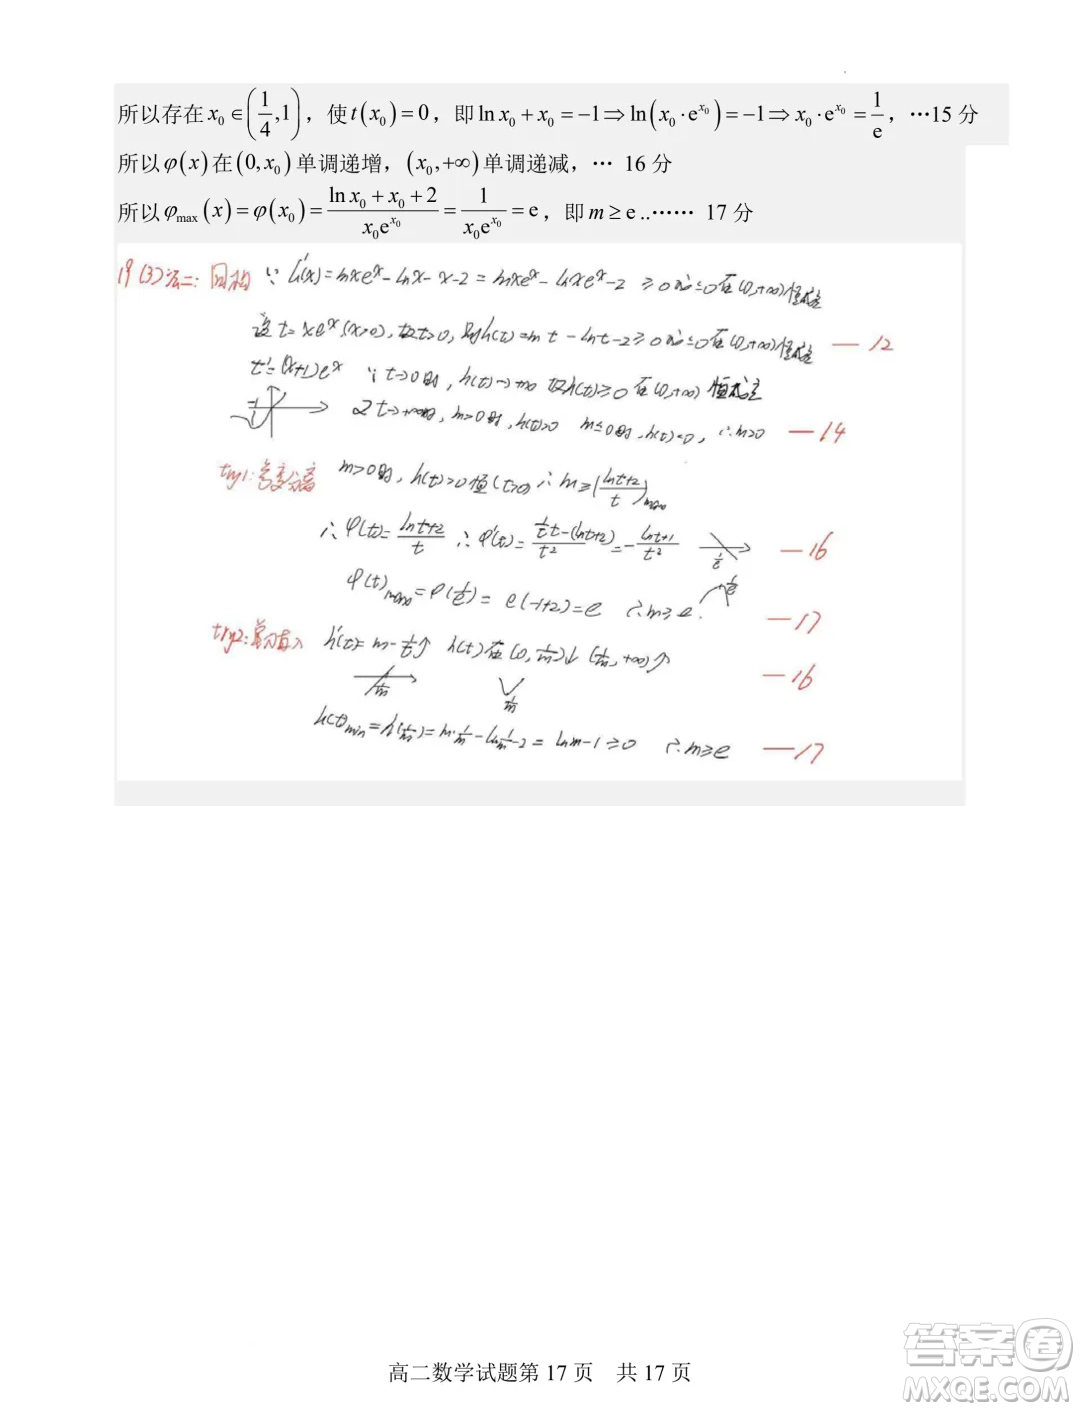 所以存在 x₀∈(1/4,1)，使 t(x₀)=0，即 ln x₀ + x₀ = −1 ⇒ ln(x₀·e^{x₀}) = −1 ⇒ x₀·e^{x₀} = 1/e，…15 分
所以 φ(x) 在 (0,x₀) 单调递增，(x₀,+∞) 单调递减，… 16 分
所以 φ_max(x)=φ(x₀)=(ln x₀+x₀+2)/(x₀e^{x₀})=1/(x₀e^{x₀})=e，即 m≥e ..…… 17 分
19(3)法二：同构 ∵ h'(x)=mxe^x−lnx−x−2=mxe^x−lnxe^x−2 ≥0 在(0,+∞)恒成立
设t=xe^x(x>0)，故t>0，则h(t)=mt−lnt−2≥0 在(0,+∞)恒成立 —12
t'=(x+1)e^x ∵t→0时，h(t)→+∞ 故h(t)≥0在(0,+∞)恒成立
-1
又t→+∞时，m>0时，h(t)>0 m≤0时，h(t)<0，∴m>0 —14
try1:参变分离 m>0时，h(t)≥0恒(t>0) ∴m≥((lnt+2)/t)max
∴φ(t)=(lnt+2)/t ∴φ'(t)=((1/t)t−(lnt+2))/t²=−(lnt+1)/t² 1/e —16
φ(t)max=φ(1/e)=e(−1+2)=e ∴m≥e. 1/e —17
try2: h'(t)=m−1/t↑ h(t)在(0,1/m)↓ (1/m,+∞)↑ —16
1/m 1/m
h(t)min=h(1/m)=m·1/m−ln1/m−2=lnm−1≥0 ∴m≥e —17
高二数学试题第 17 页 共 17 页
答案卷
MXQE.COM